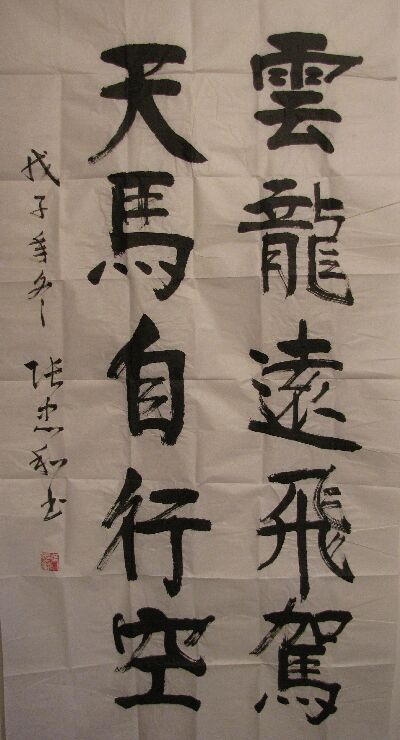 雲龍遠飛駕
天馬自行空
戊子年冬 张忠和书